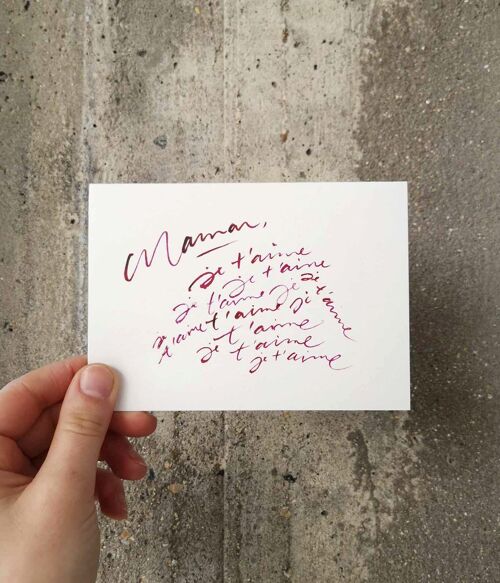 Maman,
je t'aime
je t'aime
je t'aime je je
je t'aime t'aime je t'aime
t'aime
je t'aime
je t'aime